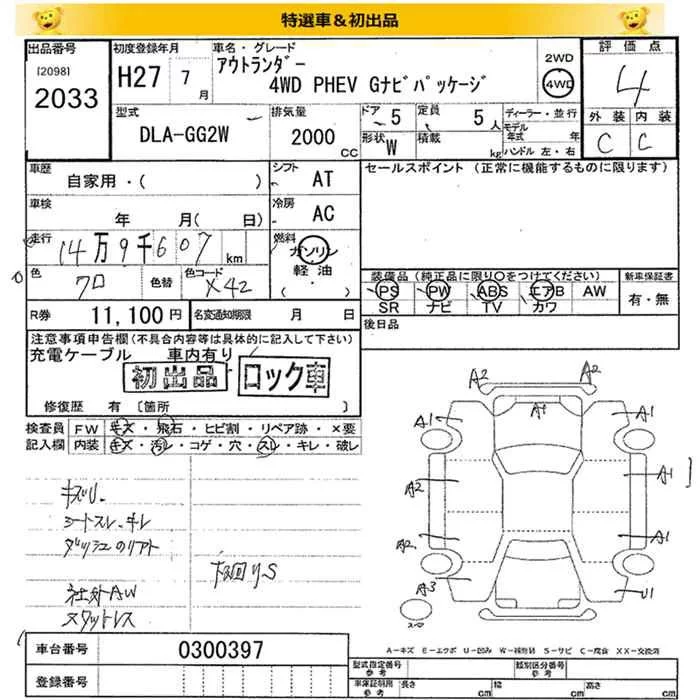 特選車＆初出品
出品番号
[2098]
2033
初度登録年月
H27 7月
車名・グレード
アウトランダー
4WD PHEV Gナビパッケージ
2WD
4WD
評価点
4
外装 内装
C C
型式
DLA-GG2W
排気量
2000 CC
ドア 5
定員 5 人
形状 W
積載 kg
ディーラー・並行
モデル年式 年
ハンドル 左・右
車歴
自家用・( )
シフト AT
セールスポイント (正常に機能するものに限ります)
車検
年 月( 日)
冷房 AC
走行
14万9千607 km
燃料
ガソリン
軽油
・( )
色
クロ
色替
色コード
X42
装備品 (純正品に限り○をつけてください)
PS PW ABS エアB AW
SR ナビ TV カワ
新車保証書
有・無
R券 11,100 円
名変通知期限 月 日
後日品
注意事項申告欄(不具合内容等は具体的に記入して下さい)
充電ケーブル 車内有り
初出品
ロック車
修復歴 有 [箇所 ]
検査員記入欄
FW キズ・飛石・ヒビ割・リペア跡・×要
内装 キズ・汚レ・コゲ・穴・スレ・キレ・破レ
キズU.
シートスレ・キレ
社外AW
スタットレス
下回りS
A2 A2
A1 A1 A1
A2 A1
A2 A1
A3 U1
A－キズ E－エクボ U－凹み W－補修跡 S－サビ C－腐食 XX－交換済
車台番号 0300397
登録番号
型式指定番号
参考
類別区分番号
参考
車庫証明用
参考
長さ cm
幅 cm
高さ cm